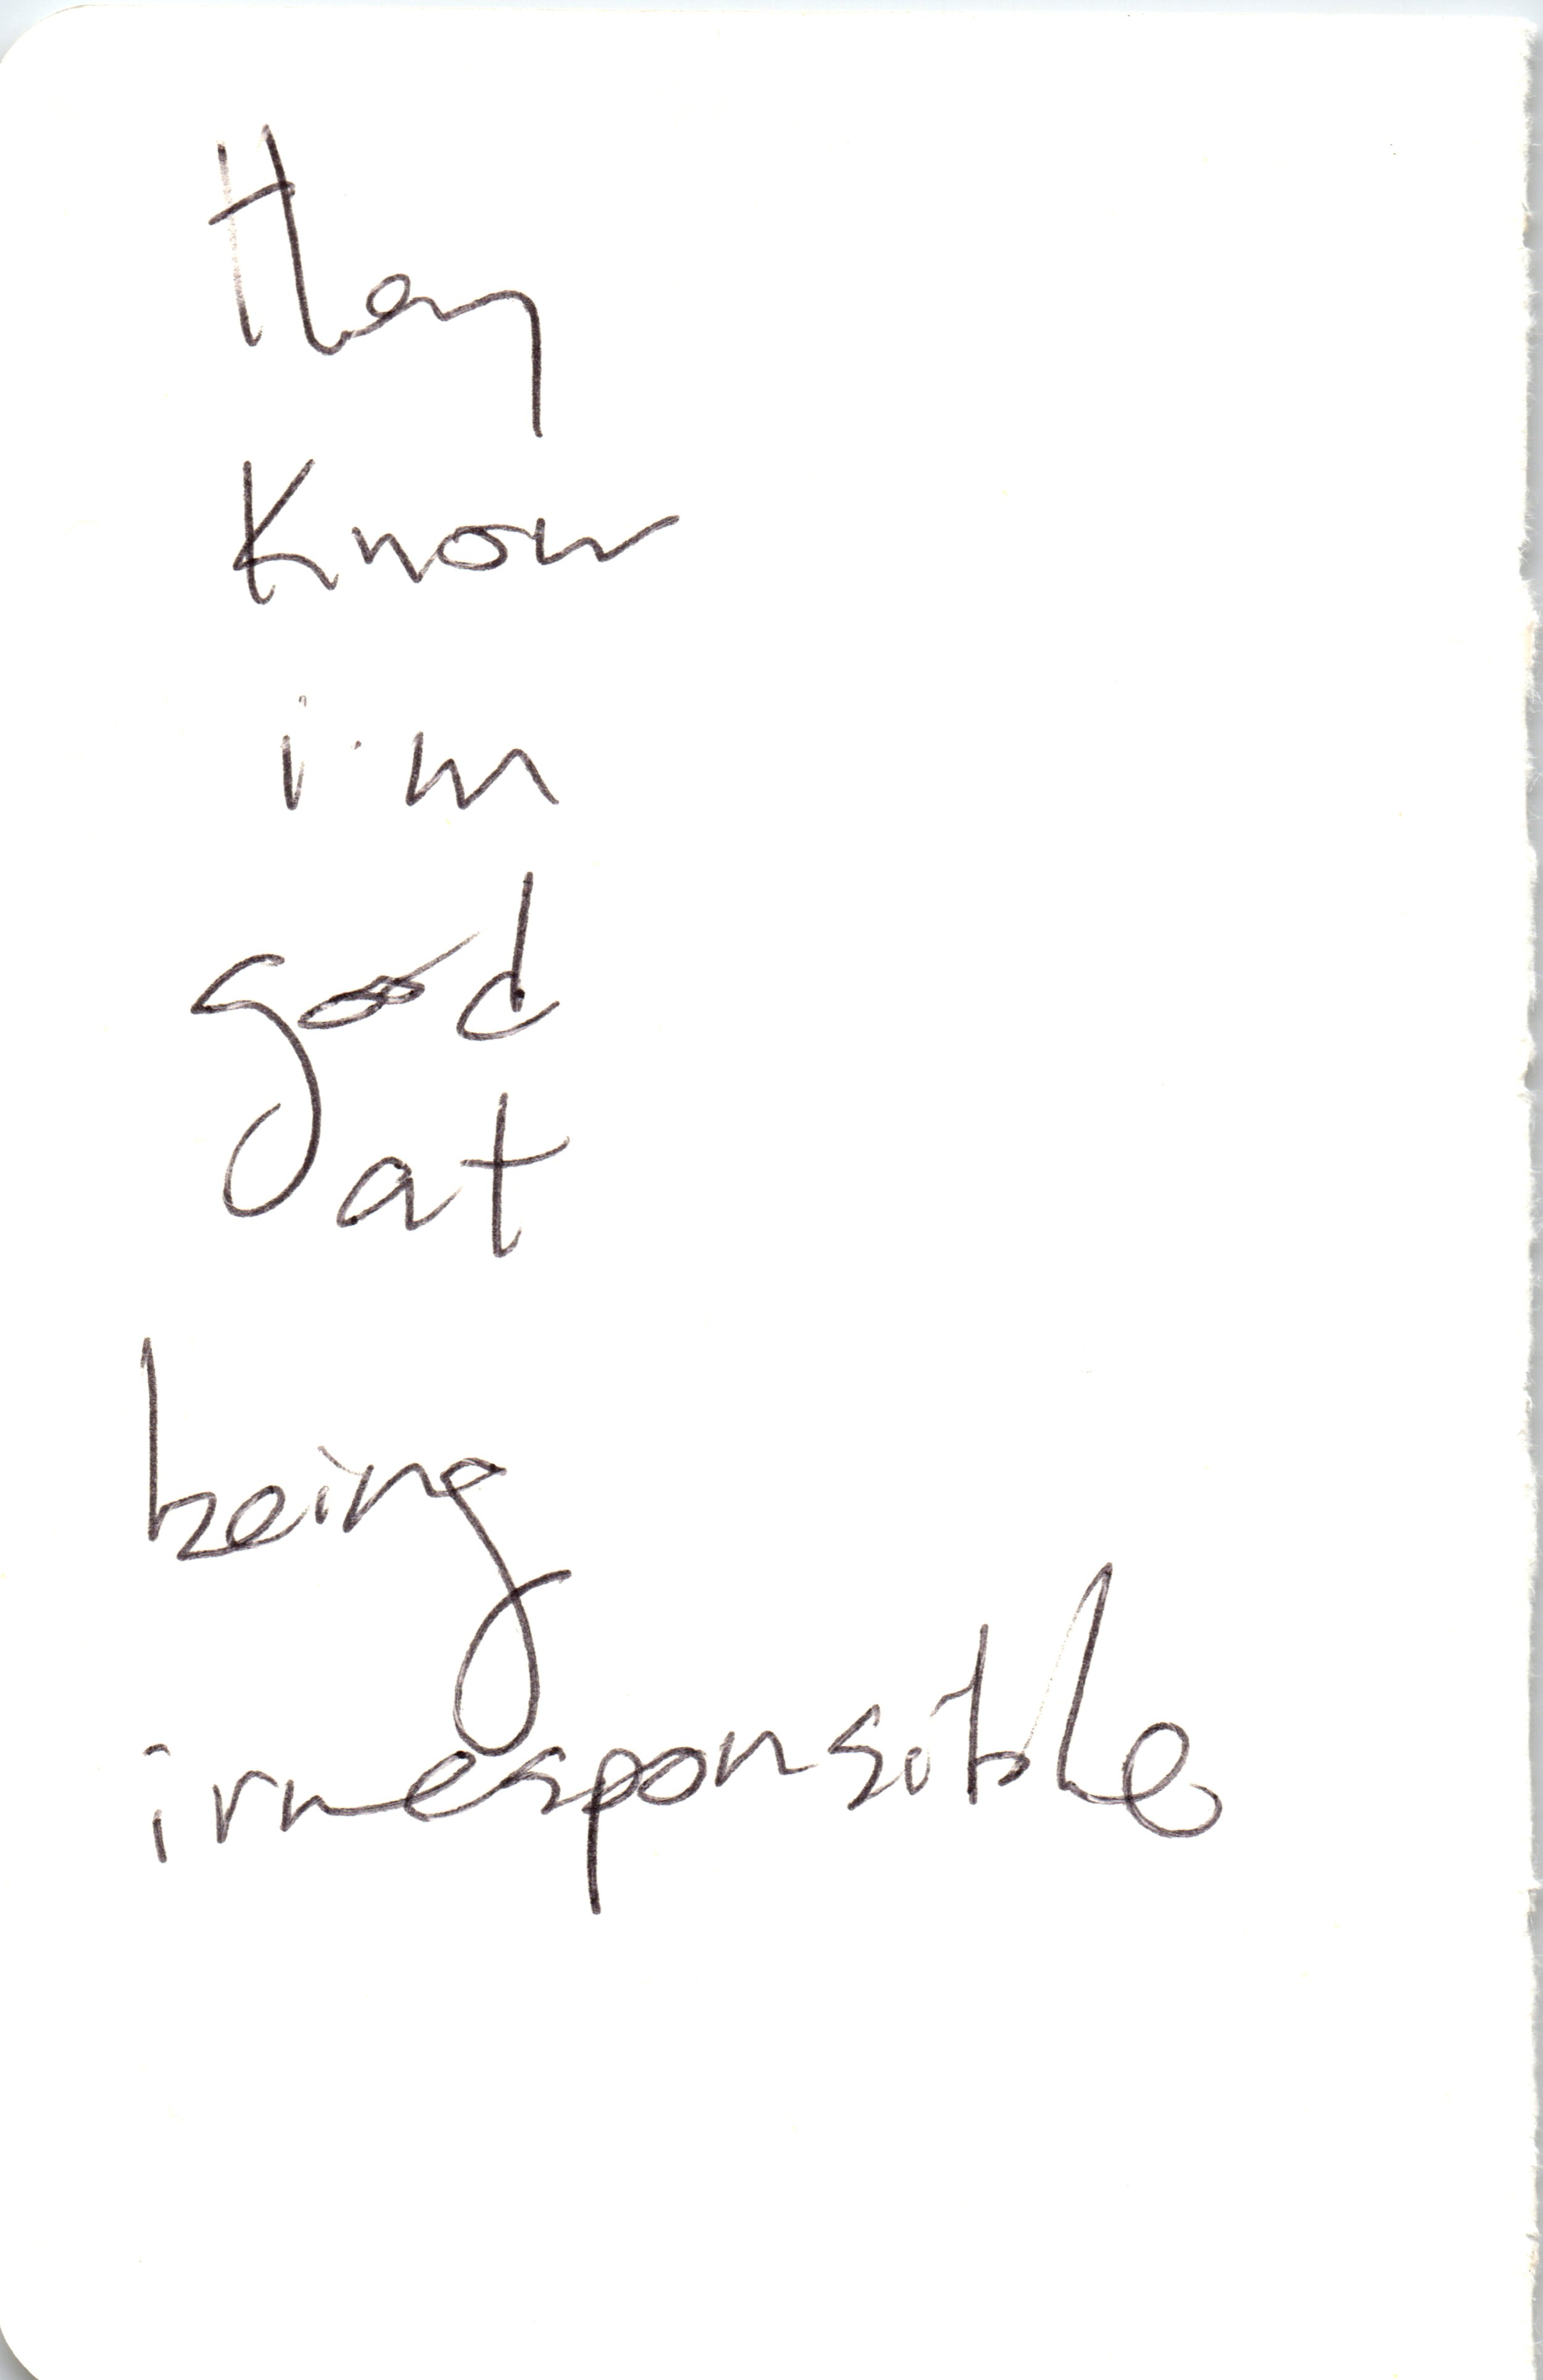 they
know
i'm
good
at
being
irresponsible